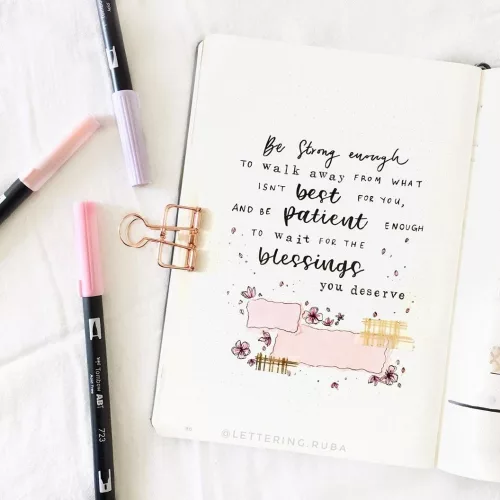 Be Strong enough
TO walk away FROM WHAT
ISN'T best FOR YOU,
AND BE patient ENOUGH
TO wait FOR THE
blessings
you deserve
@LETTERING.RUBA
Tombow ABT
723